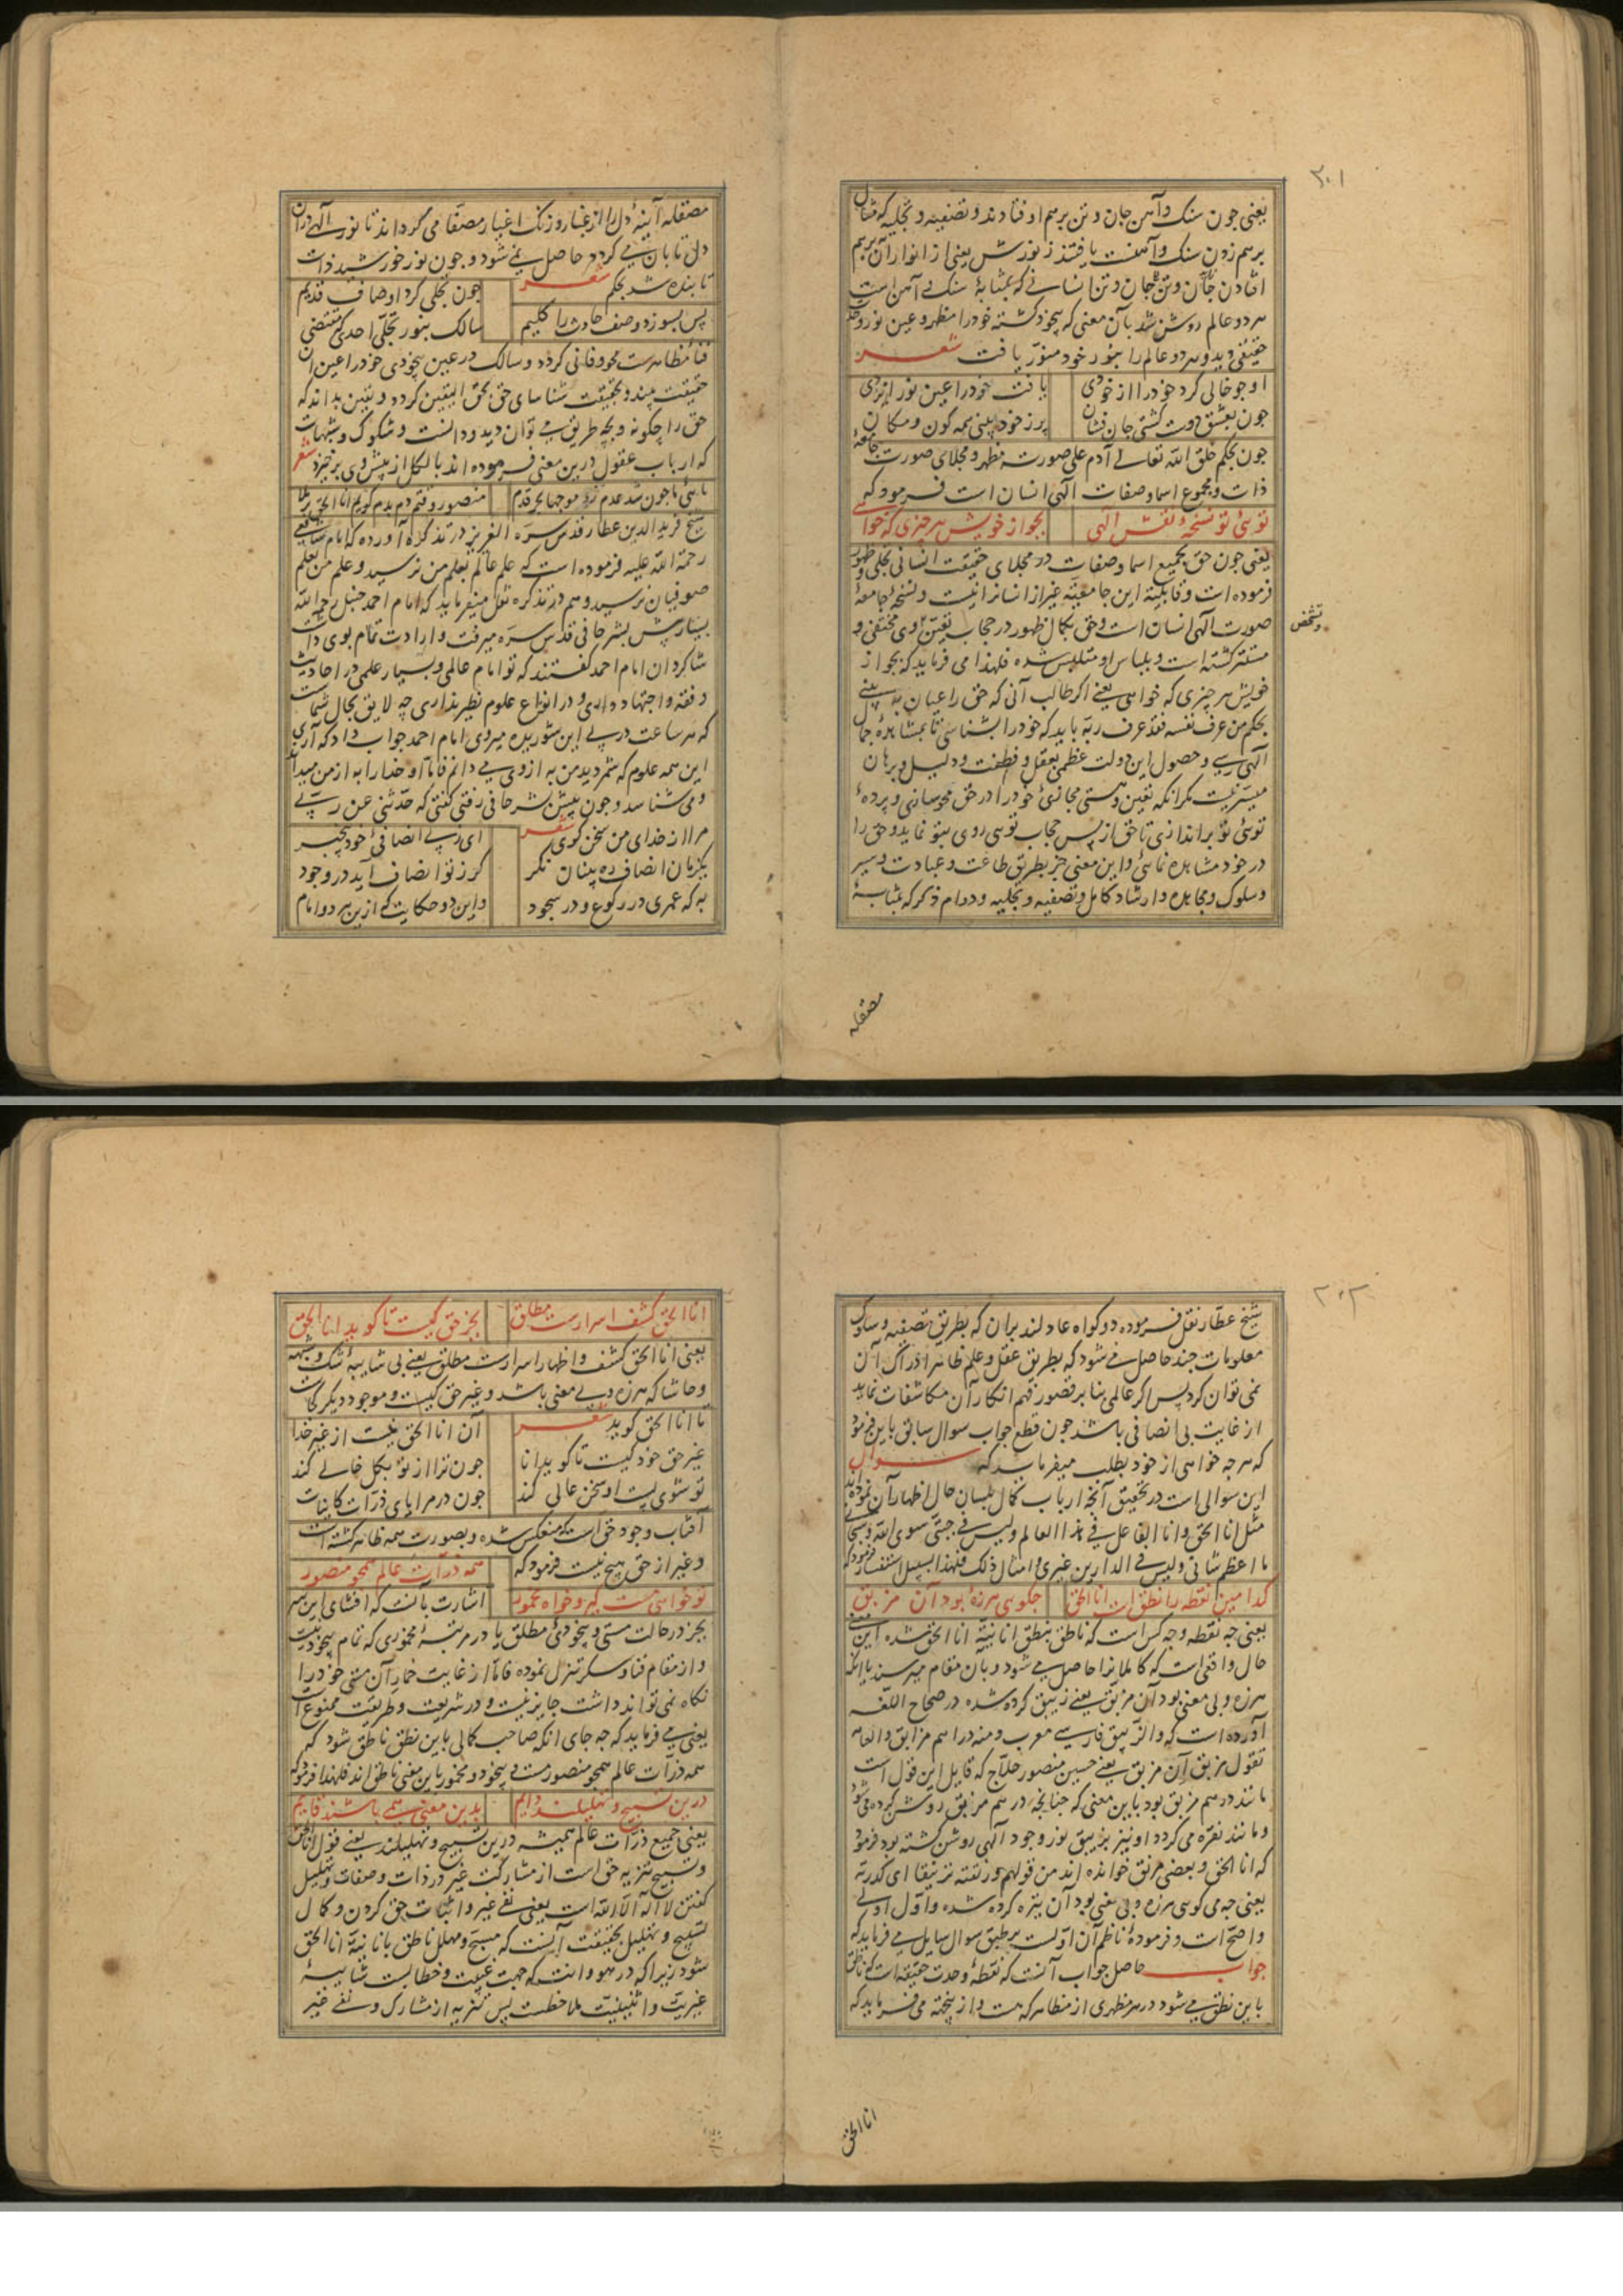 ۳۰۱
یعنی چون سنک و آهن جان و تن برهم افتادند و تصفیه و تجلیه که مثال
برهم زدن سنک و آهنست یافتند ز نورش یعنی از انوار آن برهم
افتادن جان و تن جان و تن انسانی که بمثابهٔ سنک و آهن است
هر دو عالم روشن شد بآن معنی که بیخود کشته خود را مظهر و عین نور وحدت
حقیقی دید و هر دو عالم را بنور خود منور یافت شعر
او چو خالی کرد خود را از خودی یافت خود را عین نور ایزدی
چون بعشق دوست کشتی جان فشان پر ز خود بینی همه کون و مکان
چون بحکم خلق الله تعالی آدم علی صورته مظهر و مجلای صورت جامعهٔ
ذات و مجموع اسما و صفات الهی انسان است فرمود که
تویی تو نسخهٔ نقش الهی بجو از خویش هر چیزی که خواهی
یعنی چون حق بجمیع اسما و صفات در مجلای حقیقت انسانی تجلی و ظهور
فرموده است و قابلیة این جامعیّة غیر از انسانرا نیست و نسخهٔ جامعهٔ
صورت الهی انسان است و حق بکمال ظهور در حجاب تعین وی مختفی و
و تشخص
مستتر کشته است و بلباس او متلبس شده فلهذا می فرماید که بجو از
خویش هر چیزی که خواهی یعنی اکر طالب آنی که حق را عیان به بینی
بحکم من عرف نفسه فقد عرف ربه باید که خود را بشناسی تا بمشاهدهٔ جمال
الهی رسی و حصول این دولت عظمی بعقل و فطنت و دلیل و برهان
میسر نیست مکر انکه تعین و هستی مجازیٔ خود را در حق محو سازی و پردهٔ
تویی تو براندازی تا حق از پس حجاب تویی روی بتو نماید و حق را
در خود مشاهده نمائی و این معنی جز بطریق طاعت و عبادت و سیر
و سلوک و مجاهده و ارشاد کامل و تصفیه و تجلیه و دوام ذکر که بمثابهٔ
مصقله
مصقله آینهٔ دل را از غبار و زنک اغیار مصفا می گرداند تا نور الهی در آن
دل تابان می کردد حاصل نمی شود و چون نور خورشید ذات
تابنده شد بحکم شعر چون تجلی کرد اوصاف قدیم
پس بسوزد وصف حادث را کلیم سالک بنور تجلی احدی که مقتضی
فناء مظاهرست محو و فانی کردد و سالک در عین بیخودی خود را عین آن
حقیقت بیند و بحقیقت شناسای حق بحق الیقین کردد و یقین بداند که
حق را چکونه و بچه طریق می توان دید و دانست و شکوک و شبهات
که ارباب عقول درین معنی فرموده اند بالکل از پیش وی برخیزد شعر
مائی ما چون شد عدم زد موجها بحر قدم منصور وقتم دم بدم کویم انا الحق برملا
شیخ فرید الدین عطار قدس سره العزیز در تذکره آورده که امام شافعی
رحمة الله علیه فرموده است که علم عالم بعلم من نرسید و علم من بعلم
صوفیان نرسید و هم در تذکره نقل میفرماید که امام احمد حنبل رحمه الله
بسیار پیش بشر حافی قدس سره میرفت و ارادت تمام بوی داشت
شاکردان امام احمد کفتند که تو امام عالمی و بسیار علمی در احادیث
و فقه و اجتهاد داری و در انواع علوم نظیر نداری چه لایق بحال شماست
که هر ساعت در پی این شوریده میروی امام احمد جواب داد که آری
این همه علوم که شمردید من به از وی می دانم فاما او خدا را به از من میداند
و می شناسد و چون پیش بشر حافی رفتی کفتی که حدثنی عن ربی
مرا از خدای من سخن کوی شعر ای ز بی انصافیٔ خود بیخبر
یکزمان انصاف ده پنهان نکر کر ز تو انصاف آید در وجود
به که عمری در رکوع و در سجود و این دو حکایت که ازین هر دو امام
۳۰۲
شیخ عطار نقل فرموده دو کواه عادلند بر آن که بطریق تصفیه و سلوک
معلومات چند حاصل می شود که بطریق عقل و علم ظاهر ادراک آن
نمی توان کرد پس اکر عالمی بنا بر قصور فهم انکار آن مکاشفات نماید
از غایت بی انصافی باشد چون قطع جواب سوال سابق باین فرمود
که هر چه خواهی از خود بطلب میفرماید که سوال
این سوالی است در تحقیق آنچه ارباب کمال بلسان حال اظهار آن نموده اند
مثل انا الحق و انا الفاعل فی هذا العالم و لیس فی جبتی سوی الله و سبحانی
ما اعظم شانی و لیس فی الدارین غیری و امثال ذلک فلهذا بسبیل استفسار فرمود که
کدامین نقطه را نطق است انا الحق چکویی هرزه بود آن مزبق
یعنی چه نقطه و چه کس است که ناطق بنطق انانیة انا الحق شده این معنی
حال واقعی است که کاملانرا حاصل می شود و بآن مقام میرسند یا انکه
هرزه و بی معنی بود آن مزبق یعنی زیبق کرده شده در صحاح اللغه
آورده است که و الزیبق فارسی معرب و منه دراهم مزابق و العامه
تقول مزبق آن مزبق یعنی حسین منصور حلاج که قایل این قول است
مانند درهم مزبق بود باین معنی که چنانچه درهم مزبق روشن کرده می شود
و مانند نقره می کردد او نیز بزیبق نور وجود الهی روشن کشته بود فرمود
که انا الحق و بعضی مرنق خوانده اند من قولهم رنقته ترنیقا ای کدرته
یعنی چه می کویی هرزه و بی معنی بود آن تیره کرده شده و اول اولی
و اصح است و فرمودهٔ ناظم آن اولست بر طبق سوال سایل می فرماید که
جواب حاصل جواب آنست که نقطهٔ وحدت حقیقه است که ناطق
باین نطق می شود در هر مظهری از مظاهر که هست و از پنجهته می فرماید که
انا الحق
انا الحق کشف اسرارست مطلق بجز حق کیست تا کوید انا الحق
یعنی انا الحق کشف و اظهار اسرارست مطلق یعنی بی شایبهٔ شک و شبهه
و حاشا که هرزه و بی معنی باشد و غیر حق کیست و موجود دیکر کجاست
تا انا الحق کوید شعر آن انا الحق نیست از غیر خدا
غیر حق خود کیست تا کوید انا چون ترا از تو بکل خالی کند
تو شوی پست او سخن عالی کند چون در مرایای ذرات کاینات
آفتاب وجود حق است که منعکس شده و بصورت همه ظاهر کشته است
و غیر از حق هیچ نیست فرمود که همه ذرات عالم همچو منصور
تو خواهی مست کیر و خواه مخمور اشارت بآنست که افشای این سر
بجز در حالت مستی و بیخودیٔ مطلق یا در مرتبهٔ مخموری که تمام بیخود نیست
و از مقام فنا و سکر تنزل نموده فاما از غایت خمار آن مستی خود را
نکاه نمی تواند داشت جایز نیست و در شریعت و طریقت ممنوع است
یعنی می فرماید که چه جای انکه صاحب کمالی باین نطق ناطق شود که
همه ذرات عالم همچو منصور مست و بیخود و مخمور باین معنی ناطق اند فلهذا فرمود که
درین تسبیح و تهلیلند دایم بدین معنی همی باشند قایم
یعنی جمیع ذرات عالم همیشه درین تسبیح و تهلیلند یعنی قول انا الحق
و تسبیح تنزیه حق است از مشارکت غیر در ذات و صفات و تهلیل
کفتن لا اله الا الله است یعنی نفی غیر و اثبات حق کردن و کمال
تسبیح و تهلیل بحقیقت آنست که مسبح و مهلل ناطق بانانیة انا الحق
شود زیرا که در هو و انت که جهت غیبت و خطابست شایبهٔ
غیریت و اثنینیت ملاحظست پس تنزیه از مشارک و نفی غیر